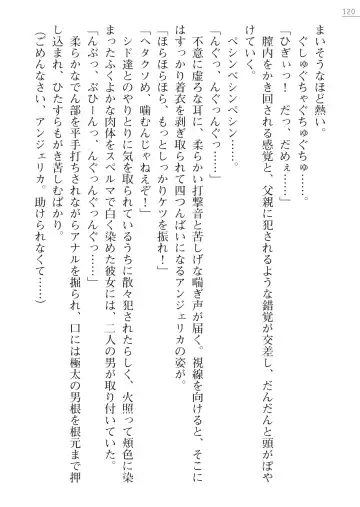 120
まいそうなほど熱い。
ぐしゅぐちゃぐちゅぐちゅ……。
「ひぎぃっ！　だっ、だめぇ……」
膣内をかき回される感覚と、父親に犯されるような錯覚が交差し、だんだんと頭がぼや
けていく。
ペシンペシンペシン……。
「んぐっ、んぐっんぐっ……」
不意に虚ろな耳に、柔らかい打撃音と苦しげな喘ぎ声が届く。視線を向けると、そこに
はすっかり着衣を剥ぎ取られて四つんばいになるアンジェリカの姿が。
「ほらほらほら、もっとしっかりケツを振れ！」
「ヘタクソめ、噛むんじゃねえぞ！」
「んぶっ、ぶひーんっ、んぐっんぐっんぐっ……」
シド達とのやりとりに気を取られているうちに散々犯されたらしく、火照って頬色に染
まったふくよかな肉体をスペルマで白く染めた彼女には、二人の男が取り付いていた。
柔らかなでん部を平手打ちされながらアナルを掘られ、口には極太の男根を根元まで押
し込まれ、ひたすらもがき苦しむばかり。
（ごめんなさい、アンジェリカ。助けられなくて……）